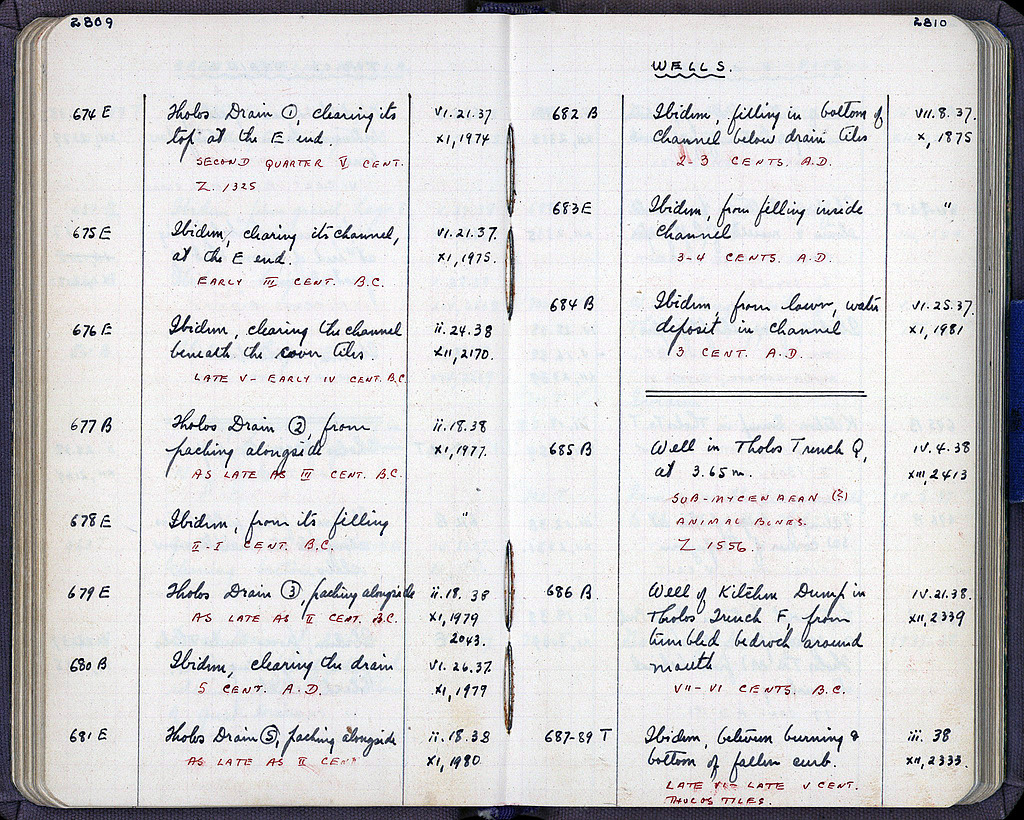 2809
674 E Tholos Drain ①, clearing its VI.21.37.
top at the E end. XI, 1974
SECOND QUARTER V CENT.
Z. 1325
675 E Ibidem, clearing its channel, VI.21.37.
at the E end. XI, 1975.
EARLY III CENT. B.C.
676 E Ibidem, clearing the channel ii.24.38
beneath the cover tiles. XII, 2170.
LATE V - EARLY IV CENT. B.C.
677 B Tholos Drain ②, from ii.18.38
packing alongside XI, 1977.
AS LATE AS II CENT. B.C.
678 E Ibidem, from its filling "
II - I CENT. B.C.
679 E Tholos Drain ③, packing alongside ii.18.38
AS LATE AS II CENT. B.C. XI, 1979
2043.
680 B Ibidem, clearing the drain VI.26.37.
5 CENT. A.D. XI, 1979
681 E Tholos Drain ⑤, packing alongside ii.18.38
AS LATE AS II CENT XI, 1980
2810
WELLS
682 B Ibidem, filling in bottom of VII.8.37.
channel below drain tiles X, 1875
2-3 CENTS. A.D.
683 E Ibidem, from filling inside "
channel
3-4 CENTS. A.D.
684 B Ibidem, from lower, water VI.25.37.
deposit in channel XI, 1981
3 CENT. A.D.
685 B Well in Tholos Trench Q, IV.4.38
at 3.65 m. XIII, 2413
SUB-MYCENAEAN (?)
ANIMAL BONES.
Z 1556.
686 B Well of Kitchen Dump in IV.21.38.
Tholos Trench F, from XII, 2339
tumbled bedrock around
mouth
VII - VI CENTS. B.C.
687-89 T Ibidem, between burning & iii. 38
bottom of fallen curb. XII, 2333.
LATE VI - LATE V CENT.
THOLOS TILES.